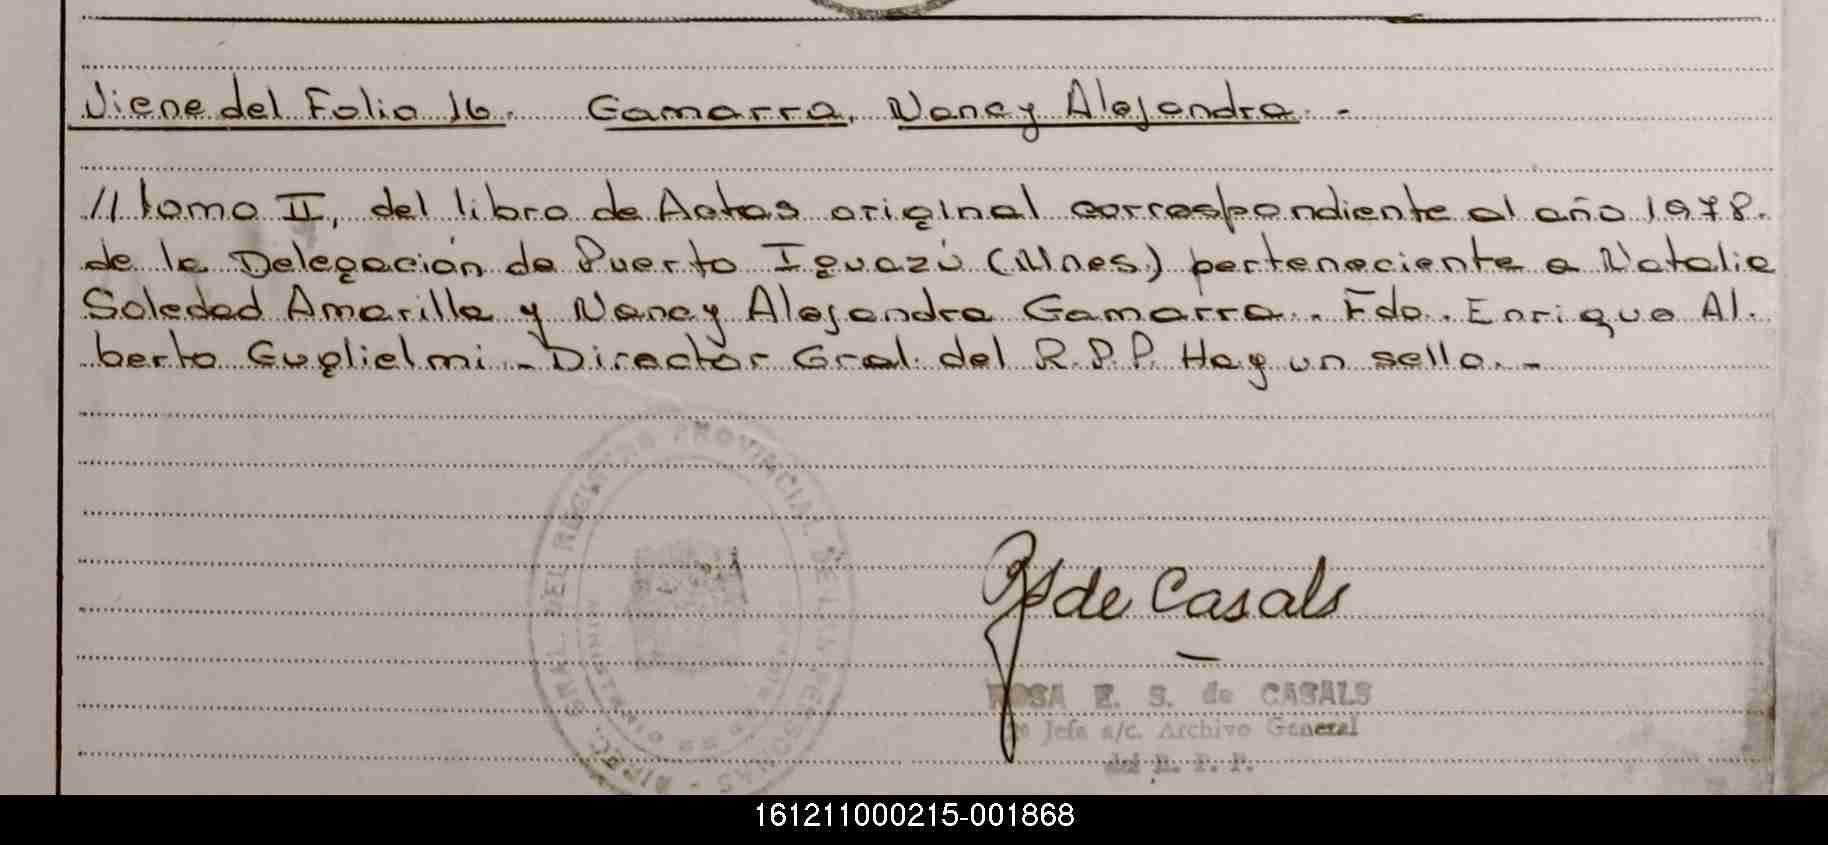 Viene del Folio 16. Gamarra, Nancy Alejandra. -
// tomo II, del libro de Actas original correspondiente al año 1978.
de la Delegación de Puerto Iguazú (Mnes.) perteneciente a Natalia
Soledad Amarilla y Nancy Alejandra Gamarra. Fdo. Enrique Al.
berto Guglielmi - Director Gral. del R.P.P. Hay un sello. -
DIREC. GRAL. DEL REGISTRO PROVINCIAL DE LAS PERSONAS -
de Casals
ROSA E. S. de CASALS
Jefa a/c. Archivo General
del R. P. P.
161211000215-001868